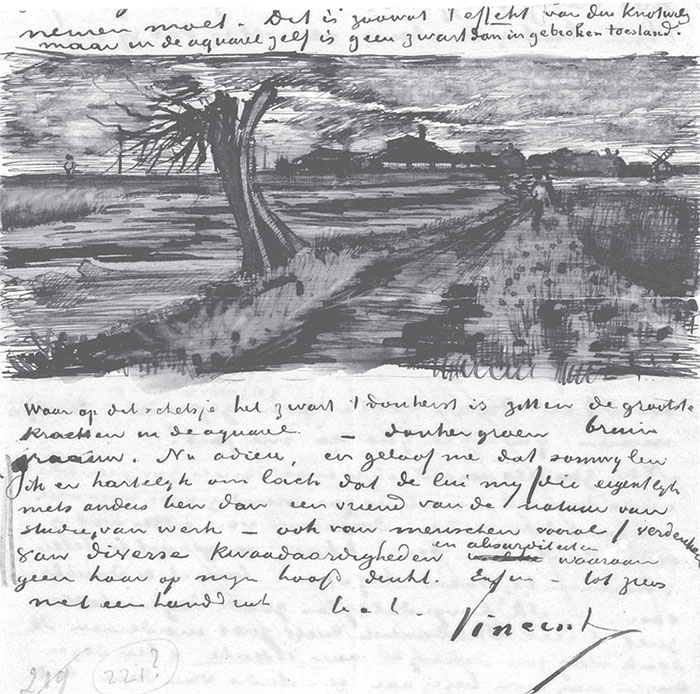 nemen moet. Dit is zoowat 't effekt van den Knotwilg
maar in de aquarel zelf is geen zwart dan in gebroken toestand.
Waar op dit schetsje het zwart 't donkerst is zitten de grootste
krachten in de aquarel – donkergroen bruin
graauw. Nu adieu, en geloof me dat somwijlen
ik er hartelijk om lach dat de lui mij /die eigentlijk
niets anders ben dan een vriend van de natuur van
studie, van werk – ook van menschen vooral / verdenken
van diverse kwaadaardigheden en absurditeiten waaraan
geen haar op mijn hoofd denkt. Enfin – tot ziens
met een handdruk t. à t.
Vincent
219 221?